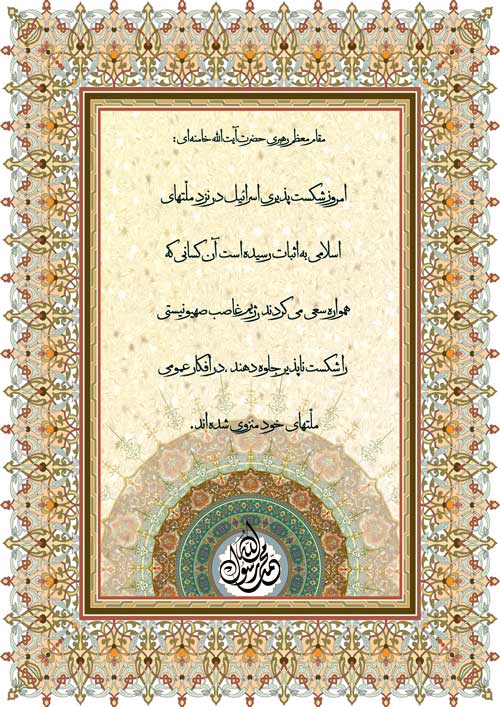 مقام معظم رهبری حضرت آیت الله خامنه ای:
امروز شکست پذیری اسرائیل در نزد ملّتهای
اسلامی به اثبات رسیده است آن کسانی که
همواره سعی می کردند رژیم غاصب صهیونیستی
را شکست ناپذیر جلوه دهند، در افکار عمومی
ملّتهای خود منزوی شده اند.
محمد رسول الله